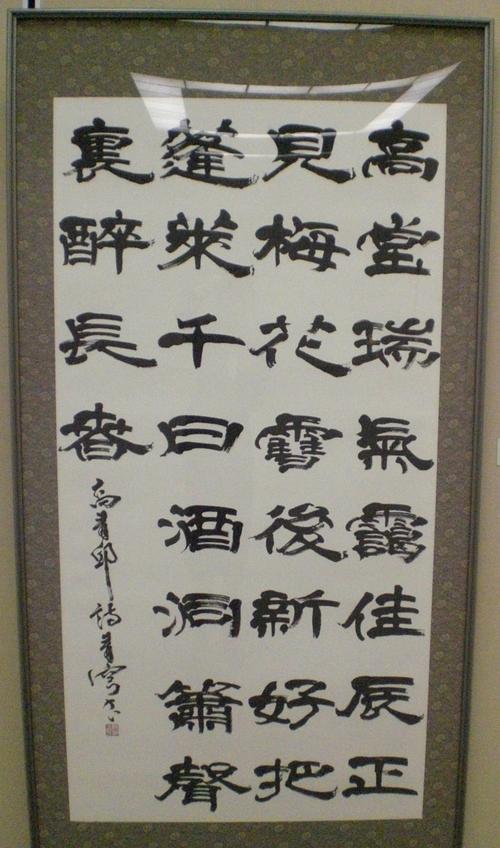 高堂瑞氣靄佳辰正
見梅花雪後新好把
蓬萊千日酒洞簫聲
裏醉長春
高青邱詩